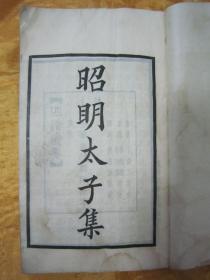 昭明太子集